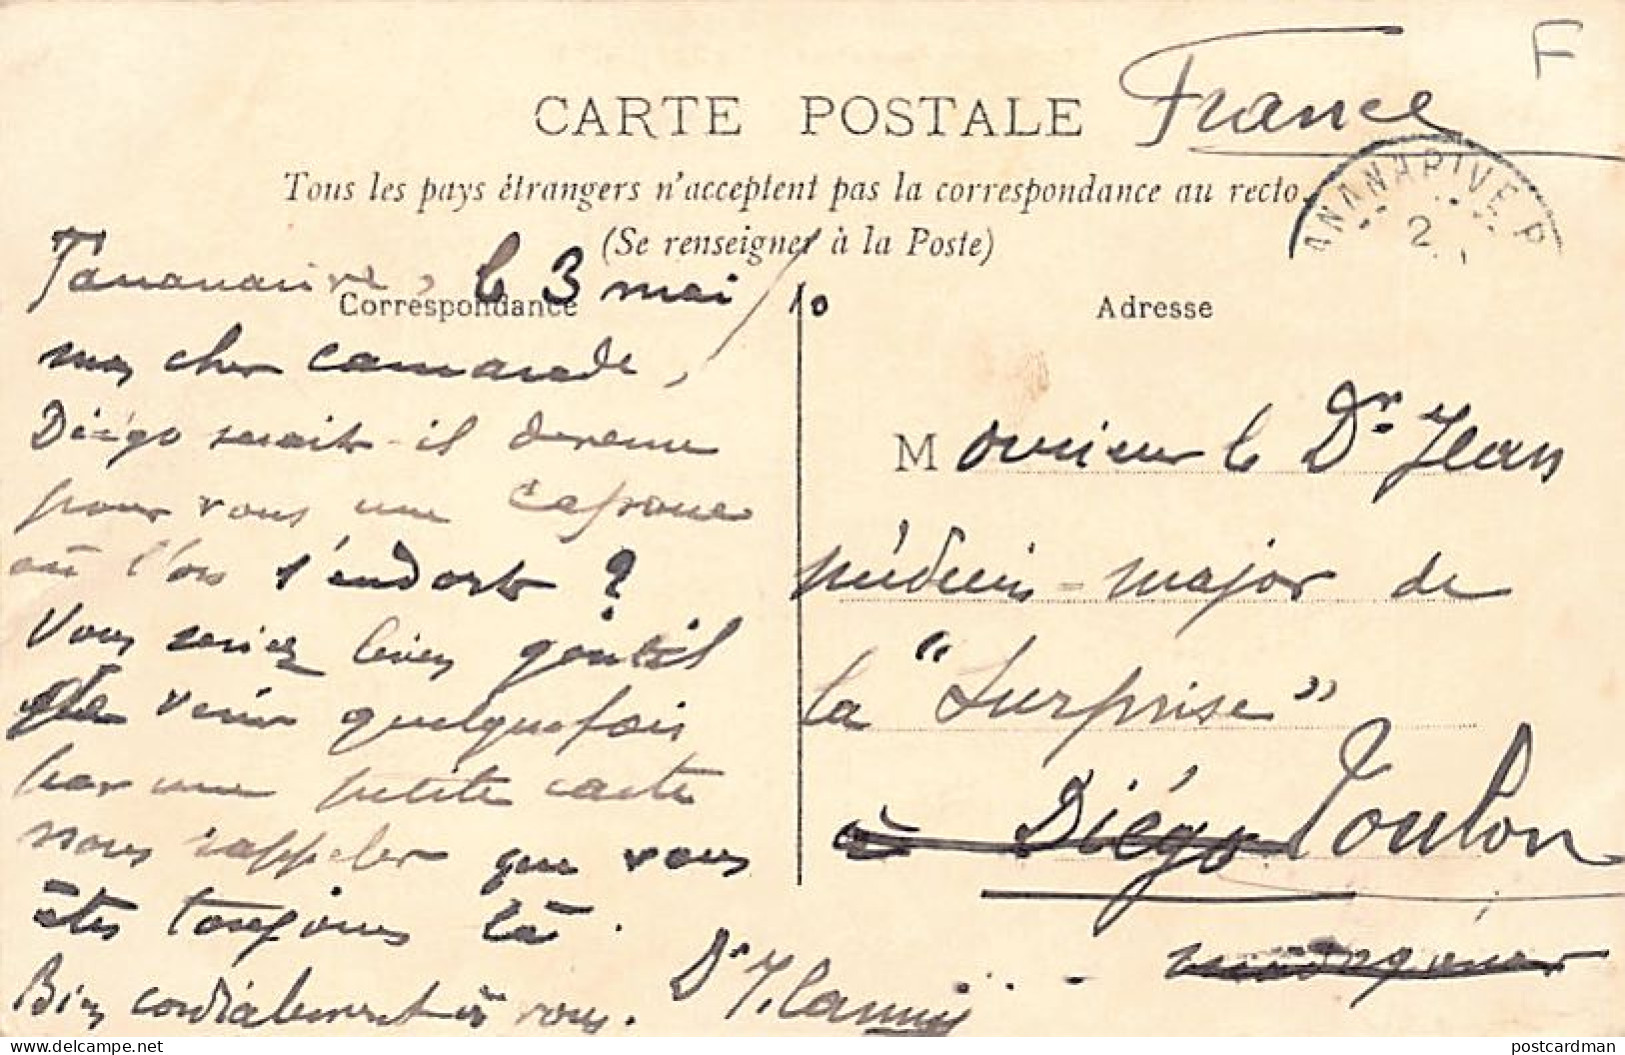 F
France
CARTE POSTALE
Tous les pays étrangers n'acceptent pas la correspondance au recto.
(Se renseigner à la Poste)
ANANARIVE P
2
Correspondance
Adresse
Tananarive, le 3 mai / 10
mon cher camarade,
Diégo serait-il devenu
pour vous une Capoue
où l'on s'endort ?
Vous seriez bien gentil
de venir quelquefois
par une petite carte
nous rappeler que vous
êtes toujours là.
Bien cordialement à vous.
Dr
Monsieur le Dr Jean
médecin-major de
la "Surprise"
à Diégo Toulon
Madagascar
postcardman
www.delcampe.net